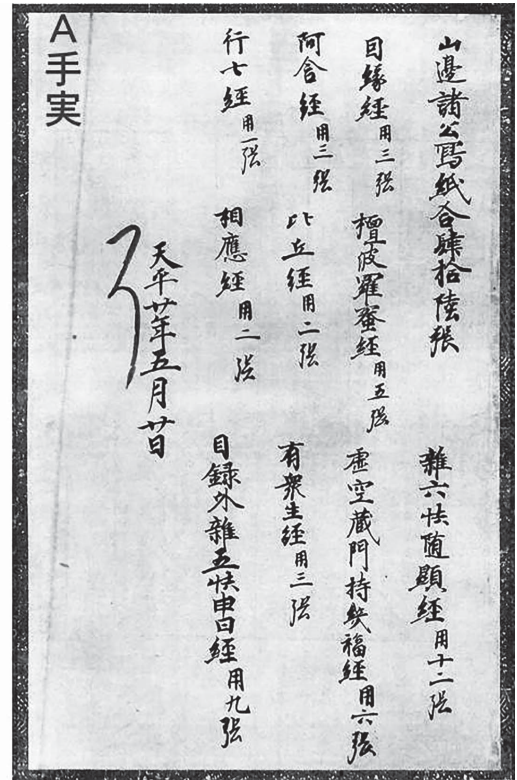 A手実
山邊諸公寫紙合肆拾陸張
雜六帙随願經 用十二張
因縁經 用三張 檀波羅蜜經 用五張 虚空蔵門持幾福經 用六張
阿含經 用三張 比丘經 用二張 有衆生經 用三張
行七經 用一張 相應經 用二張 目録外雜五帙申日經 用九張
天平廿年五月廿日